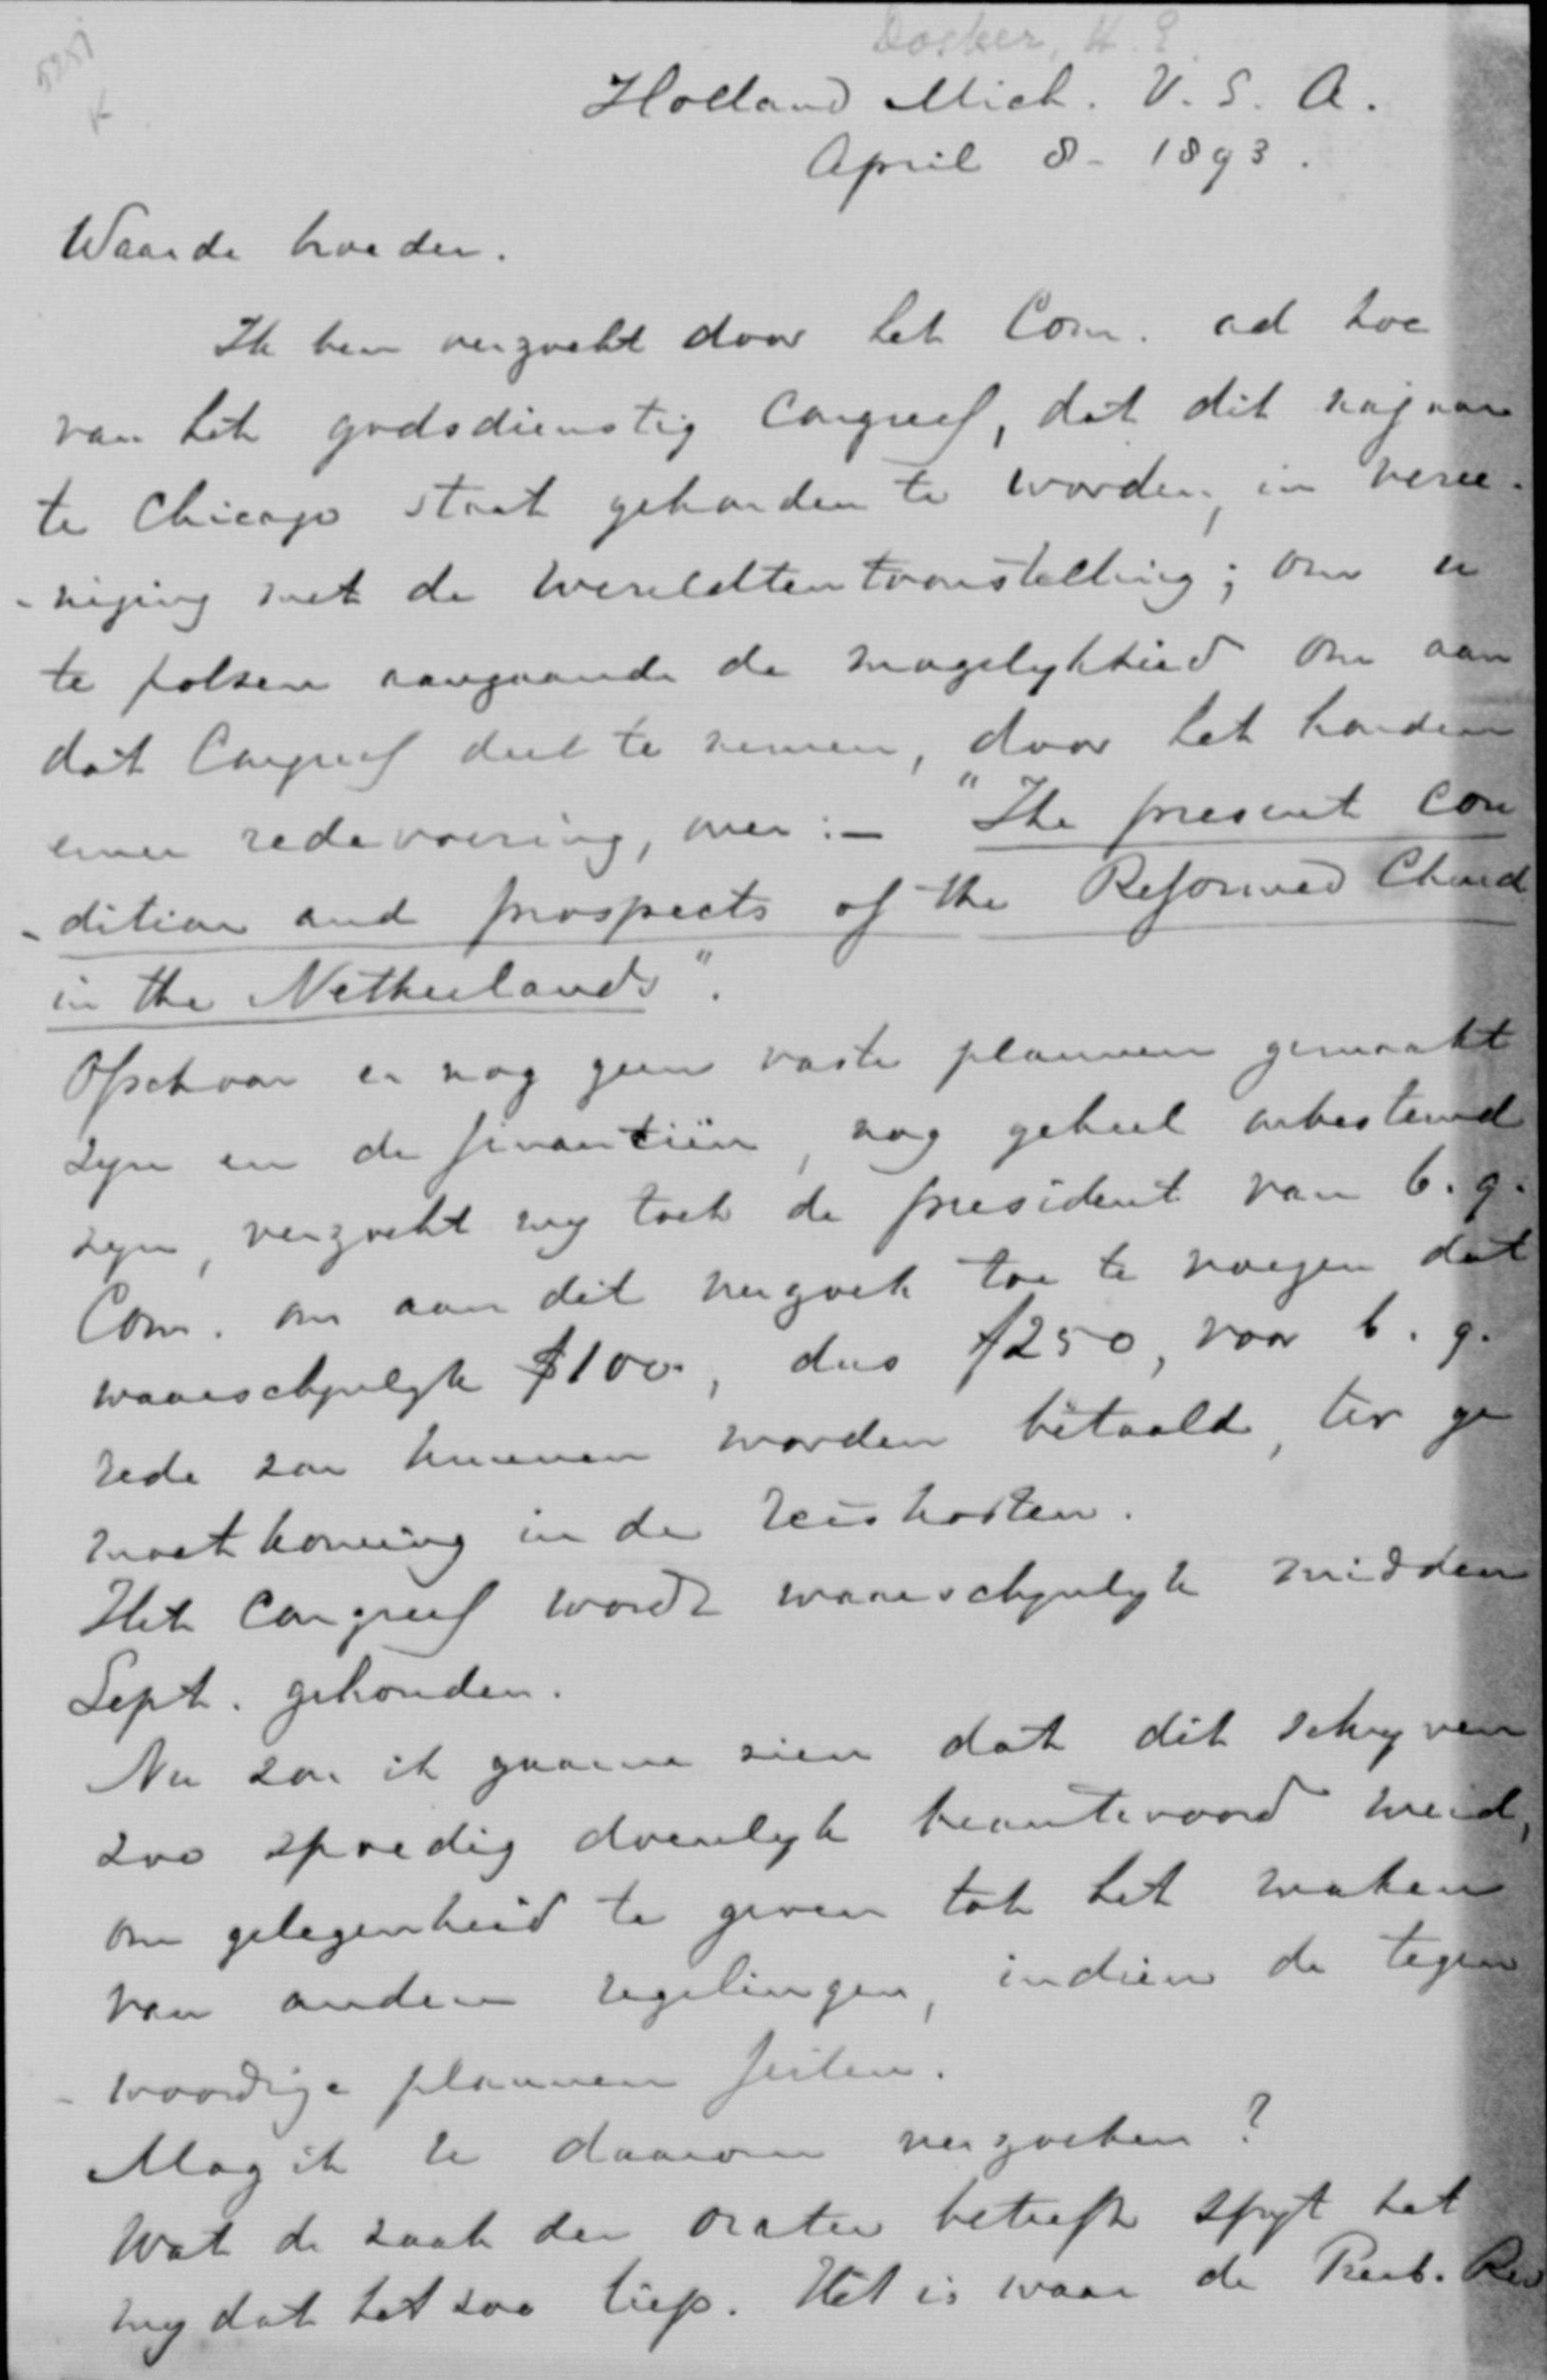 5251
Dosker, H. E.
Holland Mich. U. S. A.
April 8 - 1893.
Waarde broeder.
Ik ben verzocht door het Com. ad hoc
van het godsdienstig Congres, dat dit najaar
te Chicago staat gehouden te worden, in veree-
-niging met de wereldtentoonstelling; om u
te polsen aangaande de mogelykheid om aan
dat Congres deel te nemen, door het houden
eener redevoering, over :- "The present con
-dition and prospects of the Reformed Church
in the Netherlands".
Ofschoon er nog geen vaste plannen gemaakt
zyn en de finantiën, nog geheel onbestemd
zyn, verzocht my toch de president van b. g.
Com. om aan dit verzoek toe te voegen dat
waarschynlyk $100., dus f250, voor b. g.
rede zou kunnen worden betaald, ter ge
moetkoming in de reiskosten.
Het Congres wordt waarschynlyk midden
Sept. gehouden.
Nu zou ik gaarne zien dat dit schryven
zoo spoedig doenlyk beantwoord werd,
om gelegenheid te geven tot het maken
van andere regelingen, indien de tegen
-woordige plannen feilen.
Mag ik U daarom verzoeken?
Wat de zaak der oratie betreft spyt het
my dat het zoo liep. Het is waar de Presb. Rev